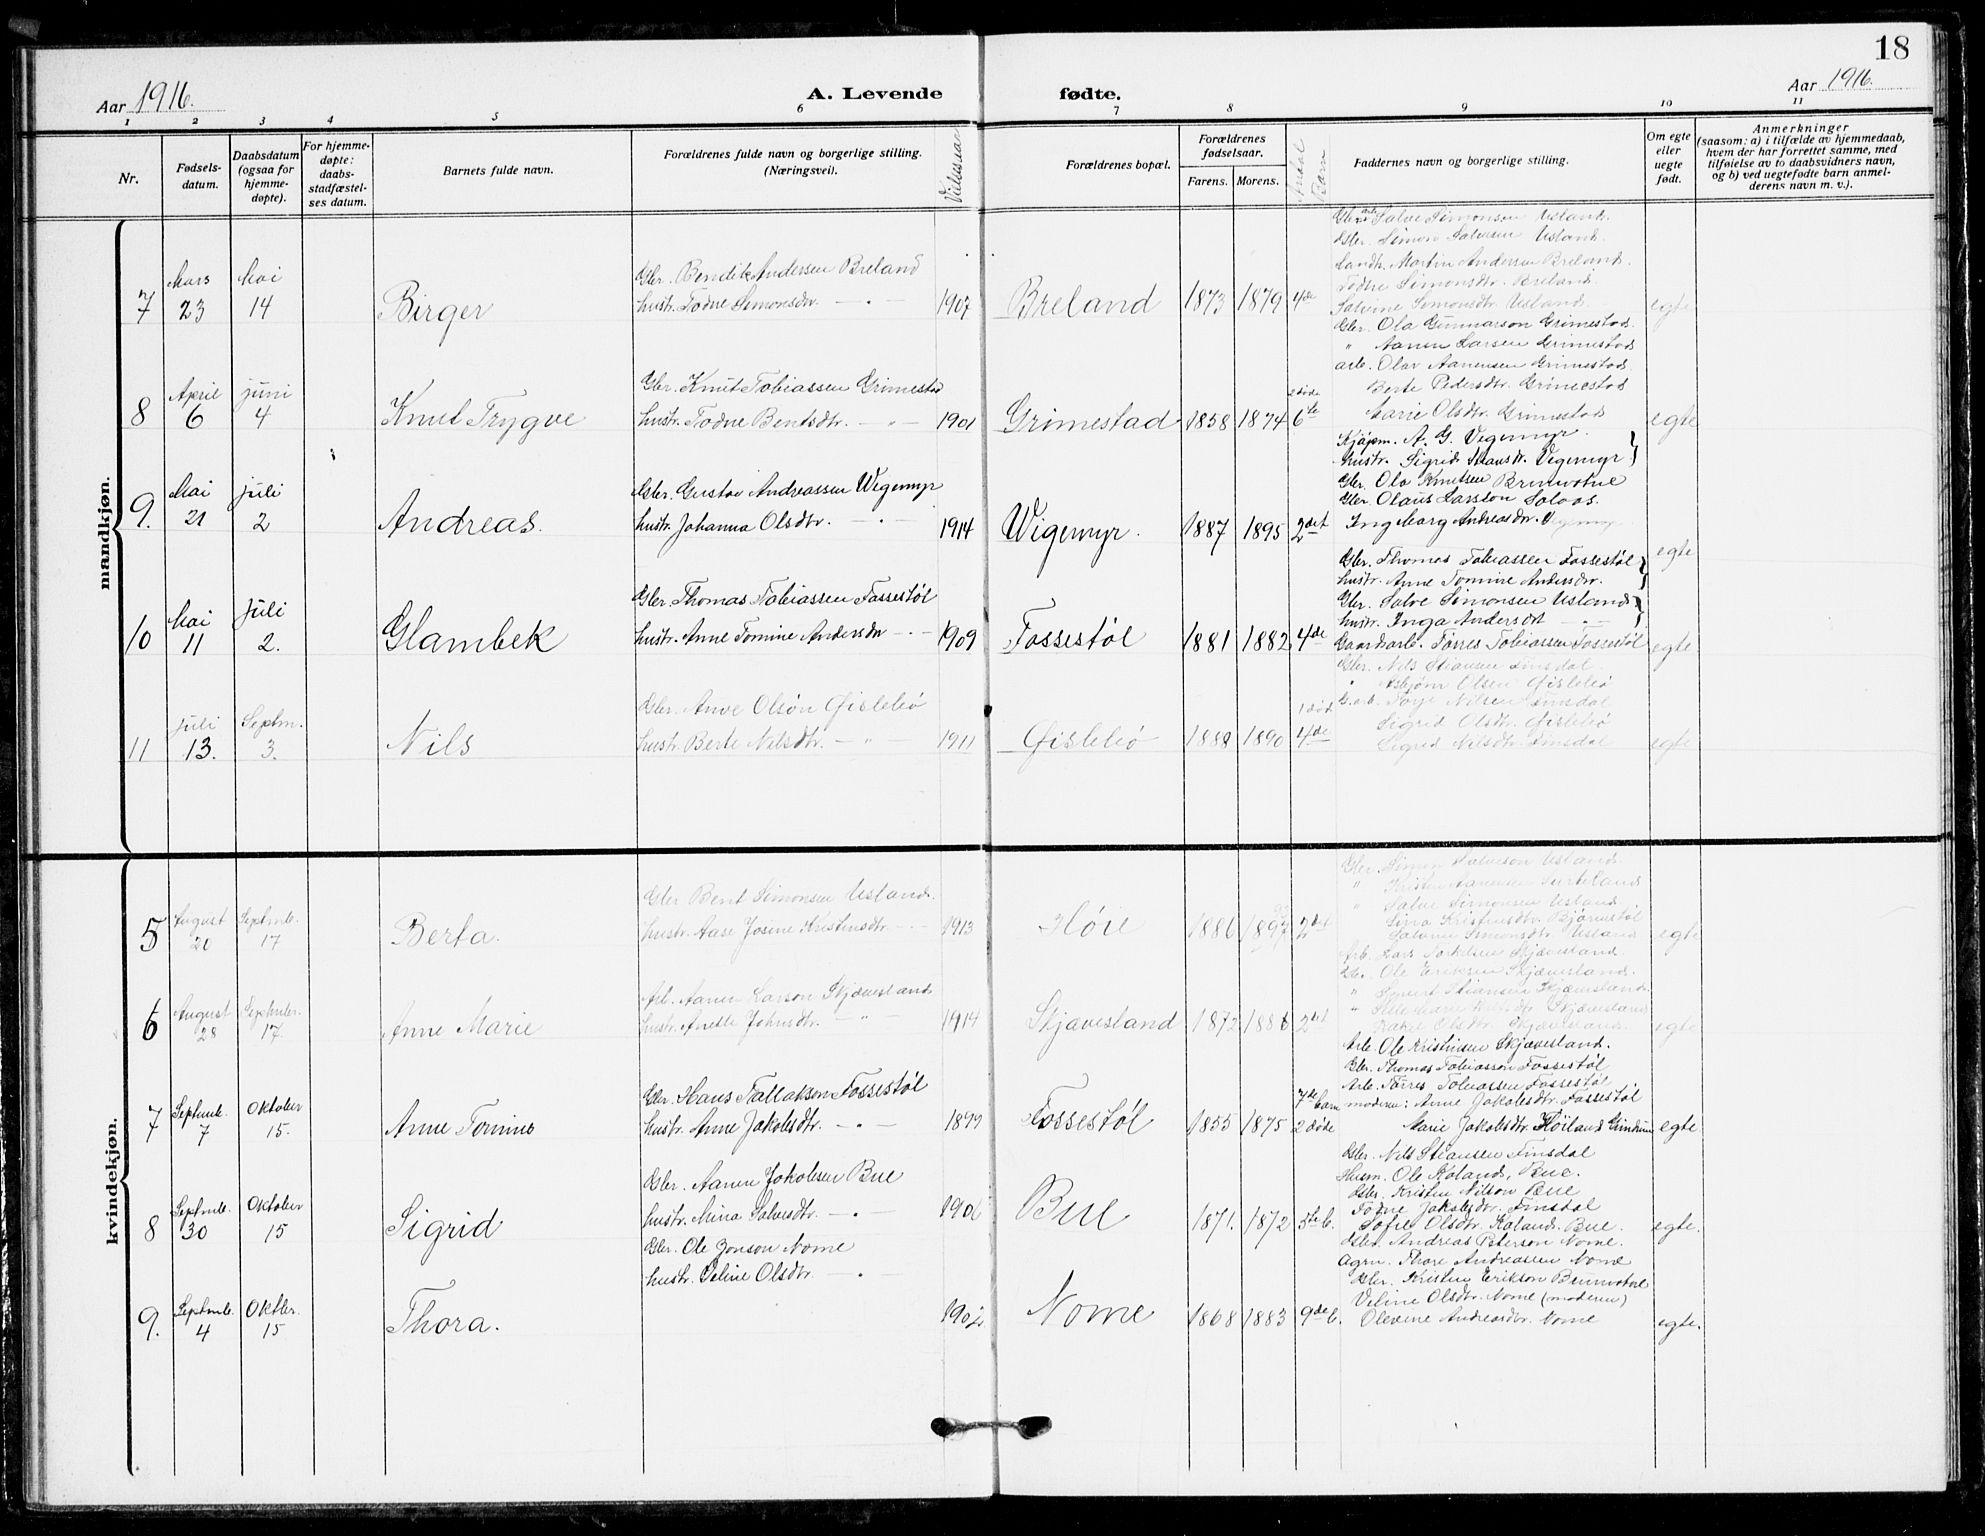 18
Aar 1916.
A. Levende fødte.
Aar 1916.
1 2 3 4 5 6 7 8 9 10 11
Nr.
Fødsels-
datum.
Daabsdatum
(ogsaa for
hjemme-
døpte).
For hjemme-
døpte:
daabs-
stadfæstel-
ses datum.
Barnets fulde navn.
Forældrenes fulde navn og borgerlige stilling.
(Næringsvei).
Vielsesaar
Forældrenes bopæl.
Forældrenes
fødselsaar.
Farens. Morens.
Antal
Barn
Faddernes navn og borgerlige stilling.
Om egte
eller
uegte
født.
Anmerkninger
(saasom: a) i tilfælde av hjemmedaab,
hvem der har forrettet samme, med
tilføielse av to daabsvidners navn,
og b) ved uegtefødte barn anmel-
derens navn m. v.).
mandkjøn.
7 Mars 23 Mai 14 Birger
Gbr. Bendik Andersen Breland
hustr. Todne Simonsdtr. — " — 1907
Breland 1873 1879 4de
Salve Simonsen Usland.
Gbr. Simon Salvesen Usland.
Landh. Martin Andersen Breland.
Todne Simonsdtr. Breland.
Salvine Simonsdtr. Usland. egte
8 April 6 juni 4 Knut Trygve
Gbr. Knut Tobiassen Grimestad
hustr. Todne Bentsdtr. — " — 1901
Grimestad 1858 1874 2 døde 6te
Gbr. Ola Gunnarson Grimestad.
" Aanen Larsen Grimestad
arb. Olav Aanensen Grimestad
Berte Pedersdtr. Grimestad
Marie Olsdtr. Grimestad egte
9. Mai 21 juli 2 Andreas.
Gbr. Gustav Andreassen Wigemyr
hustr. Johanna Olsdtr. — " — 1914
Wigemyr. 1887 1895 2det
Kjøpm. A. G. Vegemyr.
hustr. Sigrid Vegemyr
Gbr. Ola Knutsen Brunvatne
Gbr Olaus Larsson Solaas.
Ingeborg Andreasdtr. Vegemyr egte
10 Mai 11 Juli 2. Glambek
Gbr. Thomas Tobiassen Fossestøl
hustr. Anne Tomine Andersdtr — " — 1909
Fossestøl 1881 1882 4de
Gbr. Thomas Tobiassen Fossestøl
hustr. Anne Tomine Andersdtr.
Gbr. Salve Simonsen Usland
hustr. Inga Andersdt — " —
Gaardsarb. Tørres Tobiassen Fossestøl egte
11 juli 13. Septm. 3. Nils
Gbr. Anve Olsøn Øislebø
hustr. Berte Nilsdtr. — " — 1911
Øislebø 1888 1890 1 død 4de
Gbr. Nils Stiansen Finsdal.
" Asbjørn Olsen Øislebø
G.arb. Torje Nilsen Finsdal
Sigrid Olsdtr. Øislebø
Sigrid Nilsdtr. Finsdal egte
kvindekjøn.
5 August 20 Septmb. 17 Berta.
Gbr Bent Simonsen Usland.
hustr. Aase Josine Kristensdtr. — " — 1913
Høie 1886 1897 2det
Gbr. Simon Salveson Usland.
" Kristen Aanensen Surteland
" Salve Simonsen Usland
Kristensdtr. Bjørnestøl
Salvine Simonsdtr Usland egte
6 August 28 Septmber. 17. Anne Marie
Arb. Aanen Larson Skjævesland
hustr. Anette Johnsdtr. — " — 1914
Skjævesland 1872 1886 2det
Arb. Lars Torkelsen Skjævesland.
Gbr. Ole Eriksen Skjævesland.
" Stiansen Skjævesland.
Skjævesland
Olsdtr. Skjævesland. egte
7 Septmb. 7 Oktober 15. Anne Tomine
Gbr. Hans Tallakson Fossestøl
hustr. Anne Jakobsdtr. — " — 1899
Fossestøl 1855 1875 7de barn 2 døde
Arb. Ole Kristensen Skjævesland.
Gbr. Thomas Tobiasson Fossestøl
Arb. Tørres Tobiassen Fossestøl
moderen: Anne Jakobsdtr. Fossestøl
Marie Jakobsdtr. Høiland Grindum egte
8 Septmb. 30 Oktober 15 Sigrid
Gbr. Aanen Jakobsen Bue
hustr. Mina Salvesdtr. — " — 190
Bue 1871. 1872 5te b.
Gbr. Nils Stiansen Finsdal
Husm. Ole Roland, Bue.
Gbr. Kristen Nilson Bue
Todne Jakobsdtr. Finsdal
Sofie Olsdtr. Roland. Bue. egte.
9. Septmb. 4 Oktber. 15 Thora.
Gbr. Ole Jonson Nome
hustr. Veline Olsdtr. — " — 1902
Nome 1868 1883 9de b.
Gbr. Andreas Peterson Nome.
Agrn. Thore Andreassen Nome
Gbr. Kristen Erikson Brunvatne
Veline Olsdtr. Nome (moderen)
Olevine Andreasdtr. Nome egte.